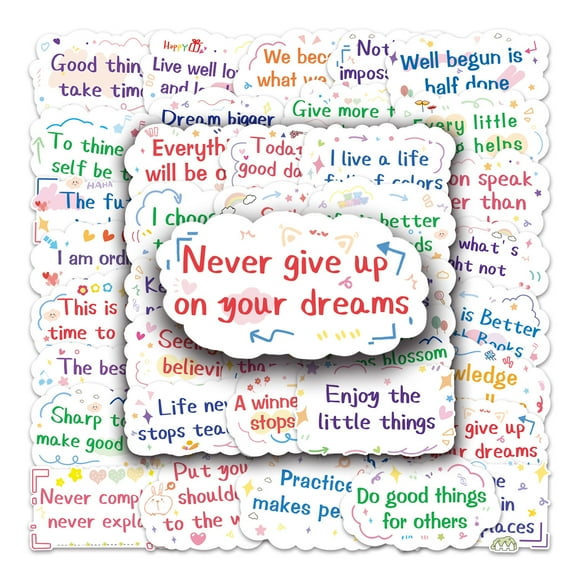 Good thin
take tim
Happy
Live well lo
and l
We bec
what we
Not
imposs
Well begun is
half done
To thine
self be t
HAHA
The fu
Dream bigger
Give more t
Every little
helps
Everyth
will be o
Toda
good da
I live a life
full of colors
on speak
er than
I choo
is better
I am ord
what's
ght not
Never give up
on your dreams
This is
time to
is Better
Books
Seeing
believin
as blossom
The bes
wledge
Sharp to
make good
Life nev
stops tea
A winne
stops
Enjoy the
little things
er give up
your dreams
Never comp
never expla
Put you
should
to the w
Practice
makes pe
Do good things
for others
e
in
places